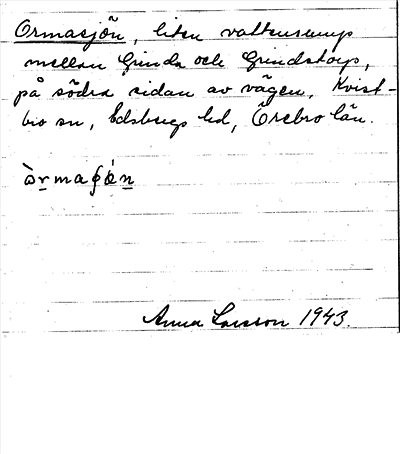 Ormasjön, liten vattensump
mellan Grinda och Grindstorp,
på södra sidan av vägen, Kvist-
bro sn, Edsbergs hd, Örebro län.
òrmaʃǿn
Anna Larsson 1943.